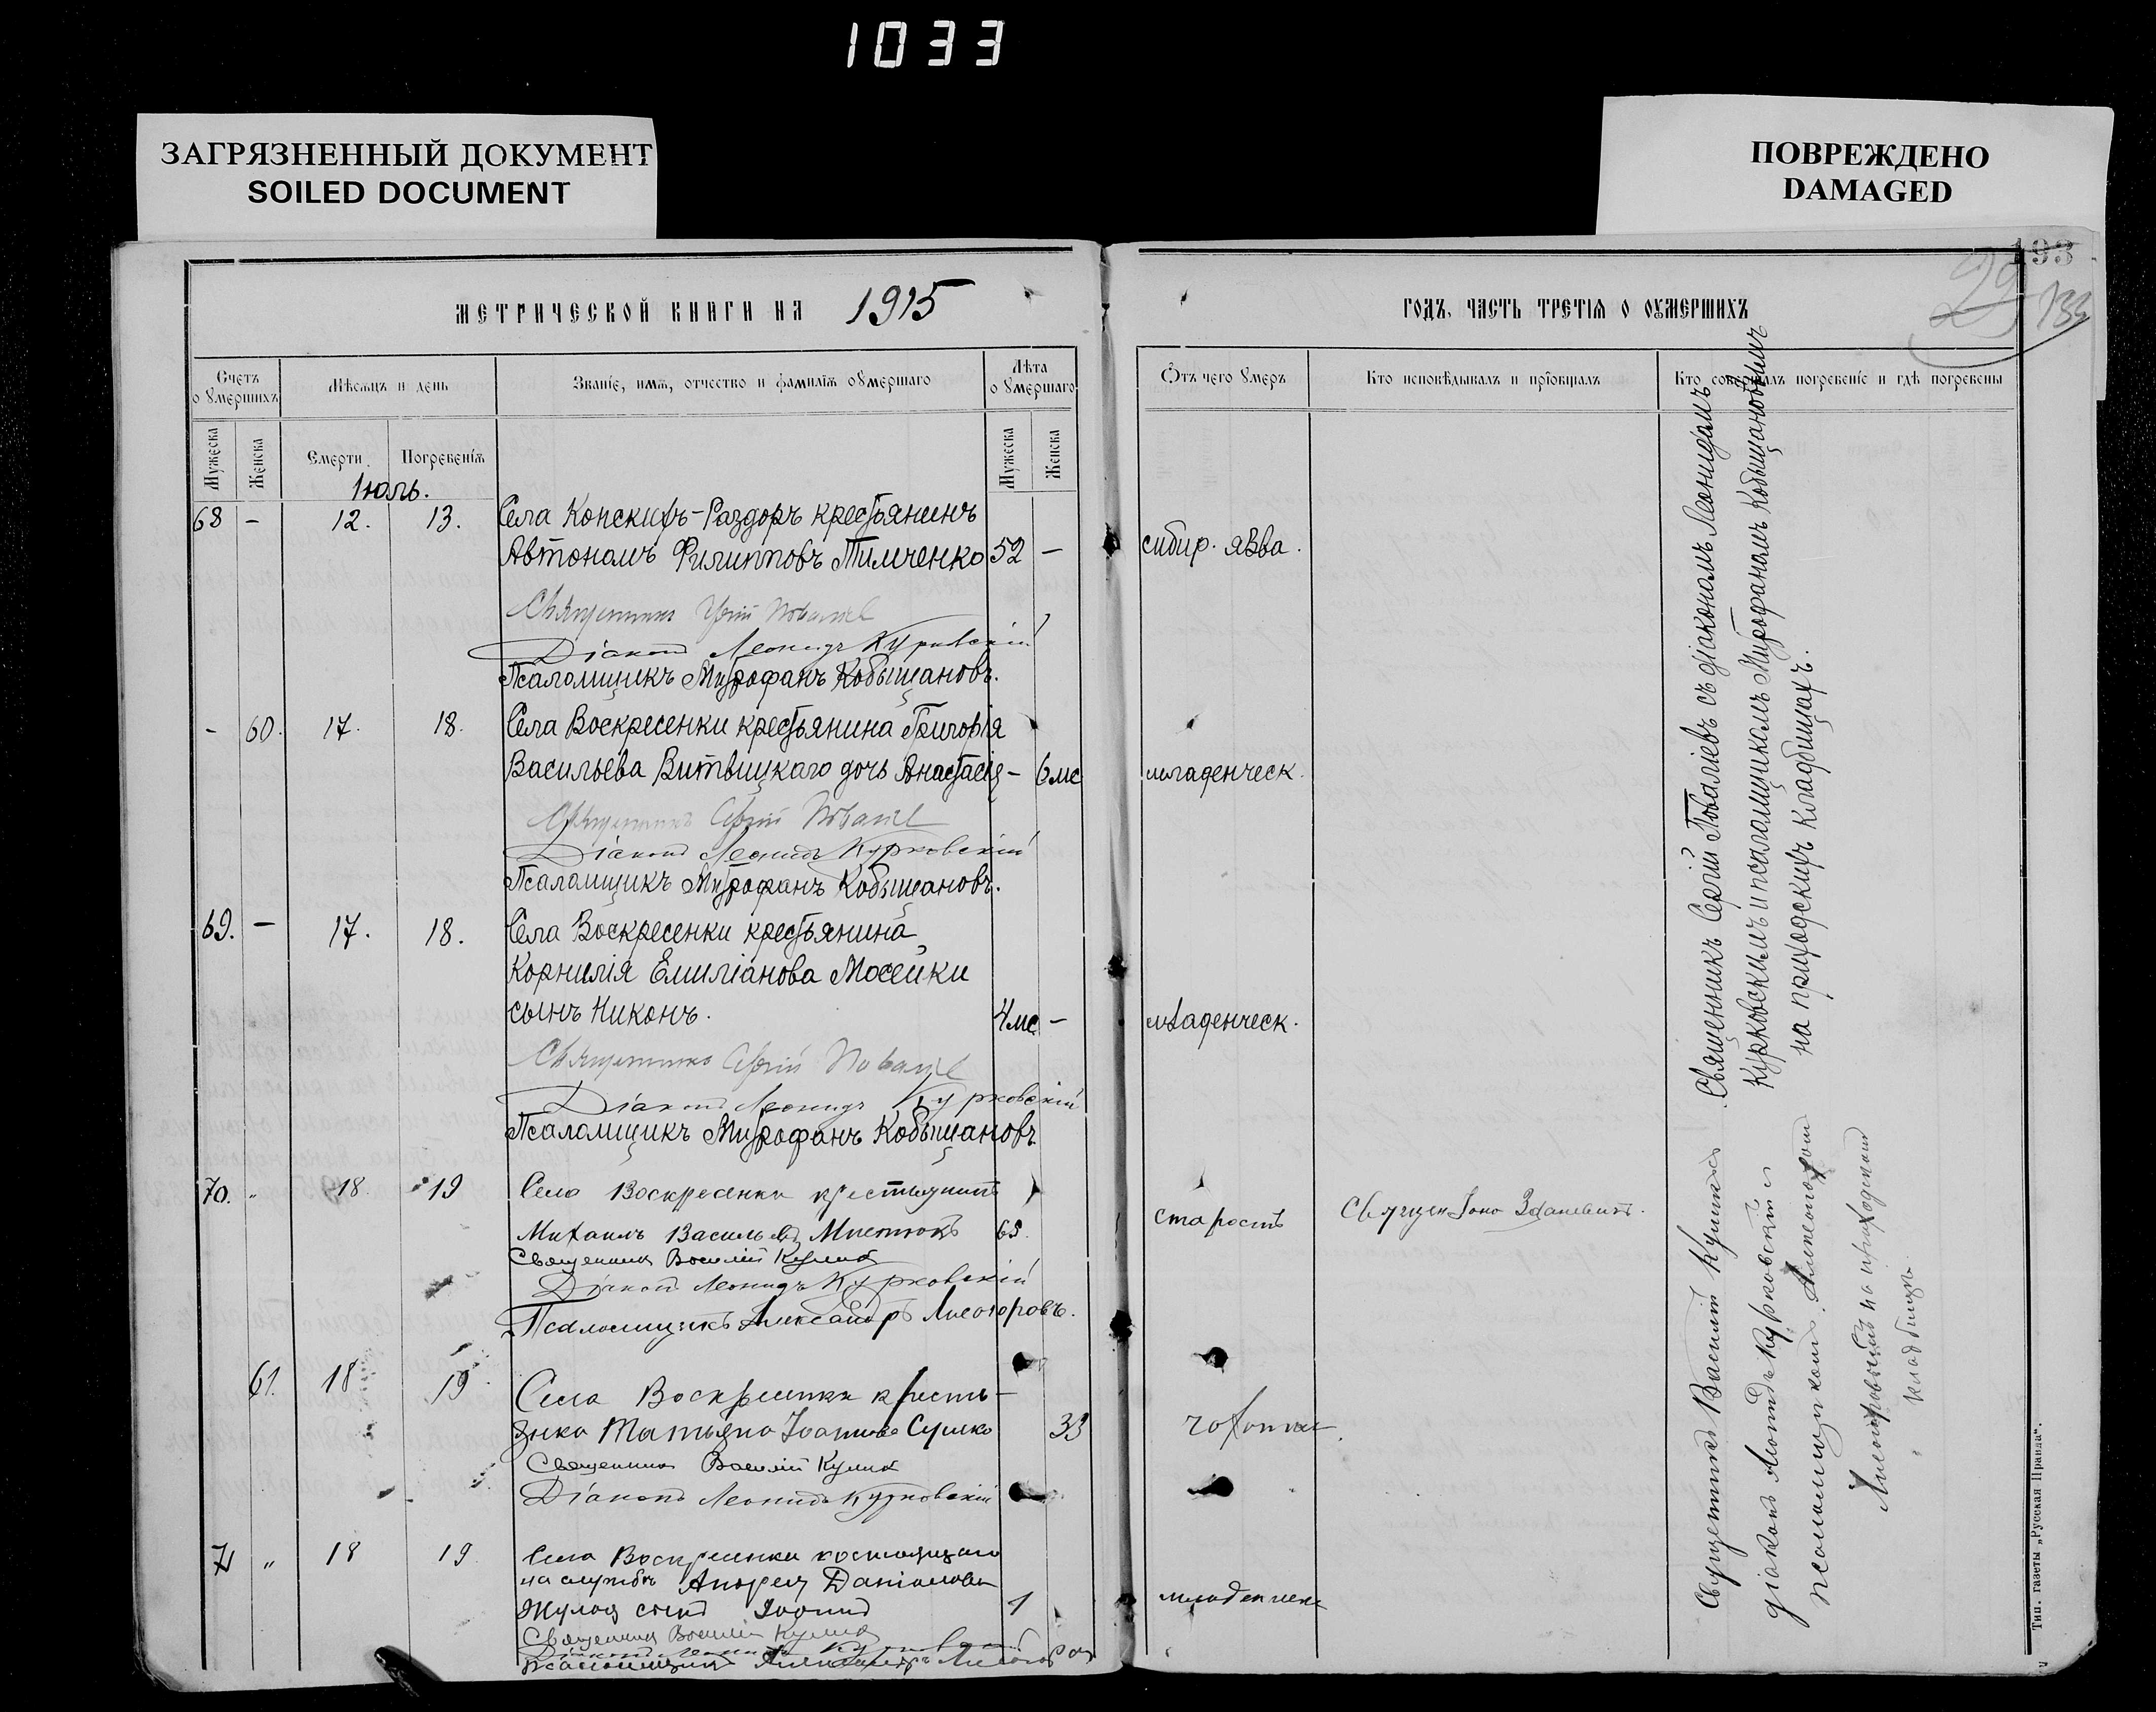 1033
ЗАГРЯЗНЕННЫЙ ДОКУМЕНТ
SOILED DOCUMENT
ПОВРЕЖДЕНО
DAMAGED
193
29
133
МЕТРИЧЕСКОЙ КНИГИ НА 1915
ГОДЪ, ЧАСТЬ ТРЕТІЯ О ОУМЕРШИХЪ
Счетъ
о умершихъ
Мѣсяцъ и день
Званіе, имя, отчество и фамилія оумершаго
Лѣта
о умершаго
Отъ чего умеръ
Кто исповѣдывалъ и пріобщалъ
Кто совершалъ погребеніе и гдѣ погребены
Мужеска
Женска
Смерти
Погребенія
Мужеска
Женска
Іюль.
68 - 12. 13. Села Конскихъ-Раздоръ крестьянинъ
Автономъ Филипповъ Тимченко 52 - сибир. язва.
Священникъ Сергій
Діаконъ Леонидъ Курковскій
Псаломщикъ Митрофанъ Кобыщановъ.
- 60. 17. 18. Села Воскресенки крестьянина Григорія
Васильева Витвицкаго дочь Анастасія - 6 мс младенческ.
Священникъ Сергій
Діаконъ Леонидъ Курковскій
Псаломщикъ Митрофанъ Кобыщановъ.
69. - 17. 18. Села Воскресенки крестьянина
Корнилія Емиліанова Мосейки
сынъ Никонъ. 4 мс - младенческ.
Священникъ Сергій
Діаконъ Леонидъ Курковскій
Псаломщикъ Митрофанъ Кобыщановъ
70. " 18. 19 Села Воскресенки крестьянинъ
Михаилъ Васильевъ 65. старость Священ Іоаннъ
Священникъ Василій Куликъ
Діаконъ Леонидъ Курковскій
Псаломщикъ Александръ Лисогоровъ.
61. 18 19 Села Воскресенки кресть-
янка Татьяна Іоаннова 33
Священникъ Василій Куликъ
Діаконъ Леонидъ Курковскій
71 " 18 19 Села Воскресенки состоящаго
на службѣ Андрея Даніилова
сынъ 1 младенческ
Священникъ Василій Куликъ
Діаконъ Леонидъ Курковскій
Псаломщикъ Александръ Лисогоров
Священникъ Сергій Повалієвъ съ діакономъ Леонидомъ
Курковскимъ и псаломщикомъ Митрофаномъ Кобыщановымъ
на приходскихъ кладбищахъ.
Священникъ Василій Куликъ съ
діакон Леонидъ Курковскій и
псаломщикомъ Александром
Лисогоровымъ на приходскомъ
кладбищѣ
Тип. газеты „Русская Правда".